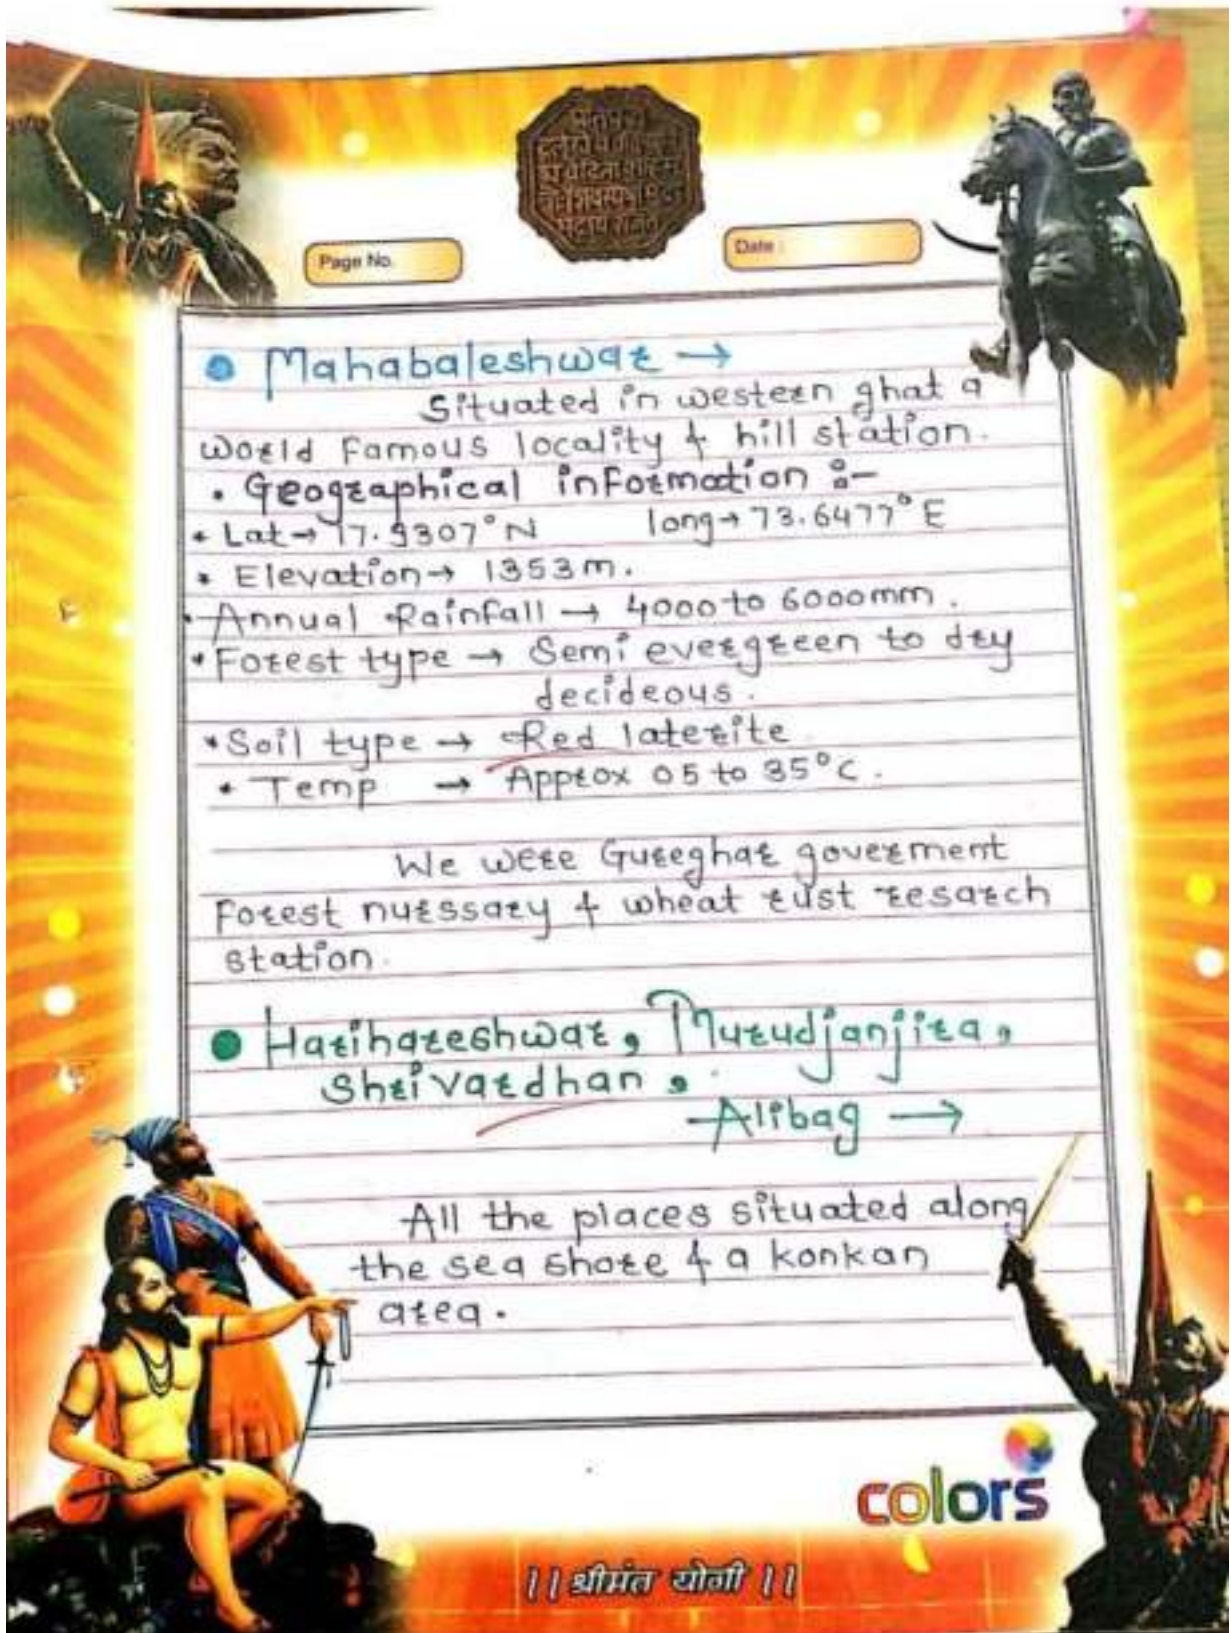 Page No.
Date :
Mahabaleshwar →
Situated in western ghat a
world famous locality & hill station.
• Geographical information :-
* Lat → 17.9307°N long → 73.6477°E
* Elevation → 1353m.
• Annual Rainfall → 4000 to 6000mm.
* Forest type → Semi evergreen to dry
decideous.
* Soil type → Red laterite
* Temp → Approx 05 to 35°C.
We were Gureghar goverment
Forest nurssary & wheat rust resarch
station.
Harihareshwar, Murudjanjira,
Shrivardhan,
Alibag →
All the places situated along
the sea shore & a konkan
area.
colors
||श्रीमंत योगी||